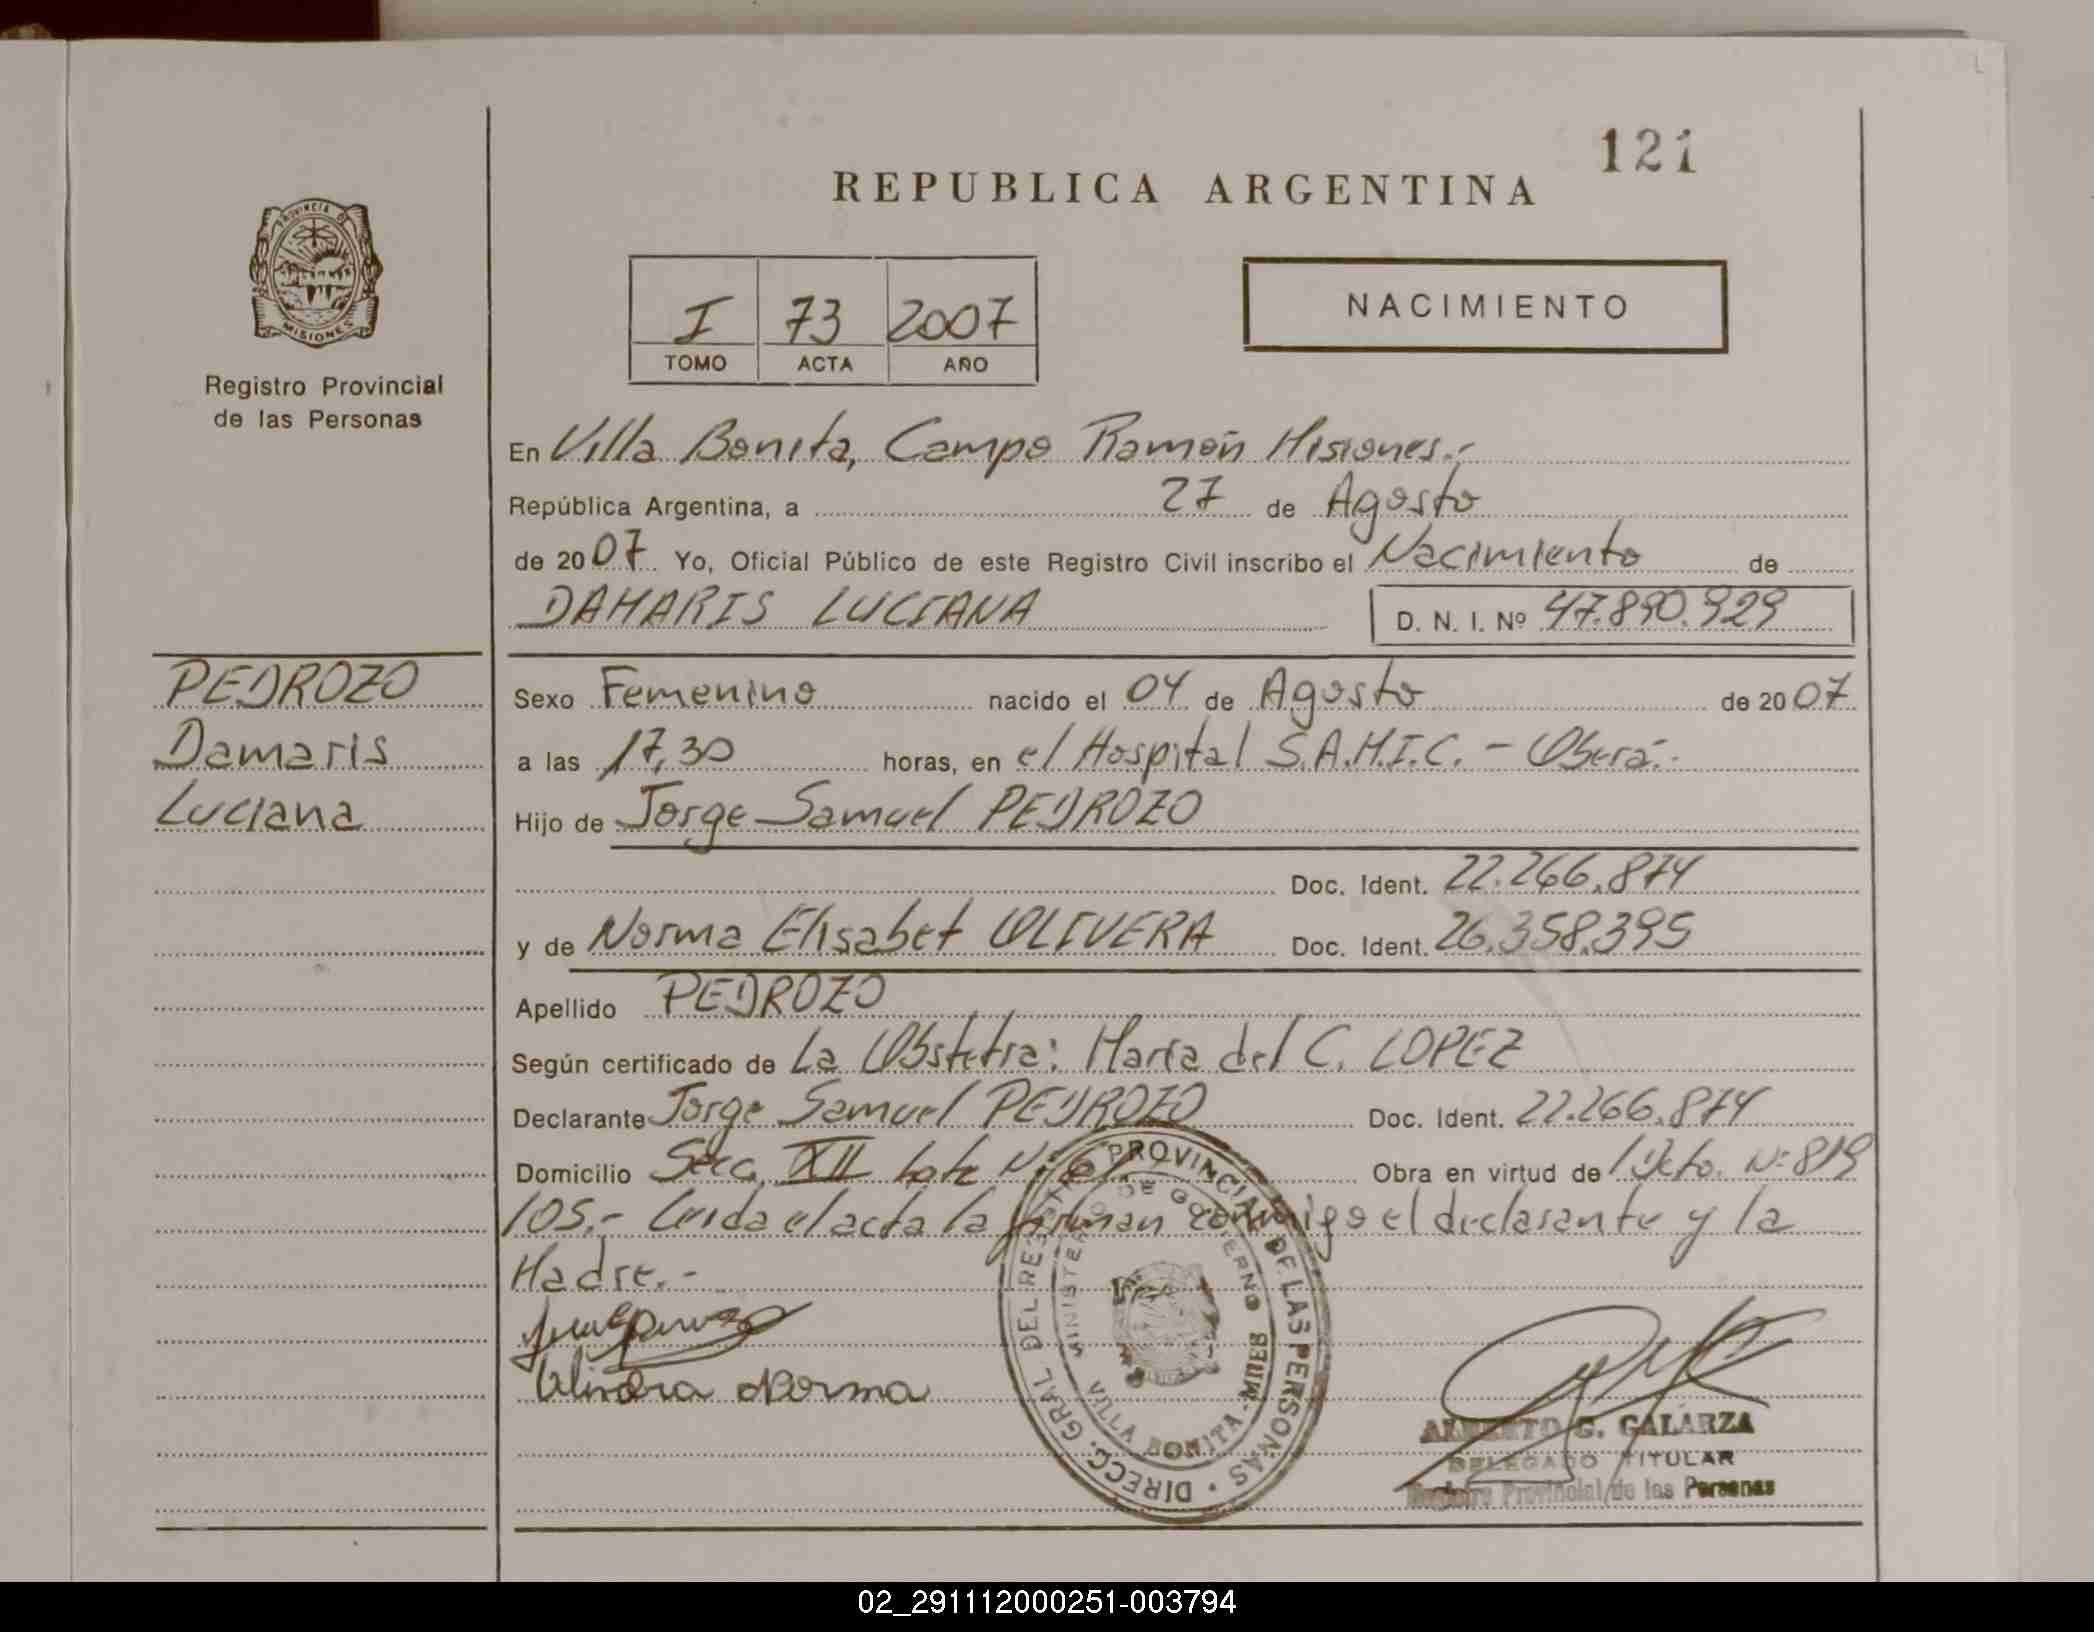 121
REPUBLICA ARGENTINA
PROVINCIA DE
MISIONES
Registro Provincial
de las Personas
I 73 2007
TOMO ACTA AÑO
NACIMIENTO
En Villa Bonita, Campo Ramón Misiones.-
República Argentina, a 27 de Agosto
de 2007 Yo, Oficial Público de este Registro Civil inscribo el Nacimiento de
DAMARIS LUCIANA D. N. I. Nº 47.890.929
PEDROZO
Damaris
Luciana
Sexo Femenino nacido el 04 de Agosto de 2007
a las 17,30 horas, en el Hospital S.A.M.I.C. - Oberá.-
Hijo de Jorge Samuel PEDROZO
Doc. Ident. 22.266.874
y de Norma Elisabet OLIVERA Doc. Ident. 26.358.395
Apellido PEDROZO
Según certificado de La Obstetra: María del C. LOPEZ
Declarante Jorge Samuel PEDROZO Doc. Ident. 22.266.874
Domicilio Secc. XII Lote Nº Obra en virtud de Dcto. Nº 819
105.- Leida el acta la firman conmigo el declarante y la
Madre.-
Olivera Norma
DIRECC. GRAL DEL REGISTRO PROVINCIAL DE LAS PERSONAS
MINISTERIO DE GOBIERNO
VILLA BONITA - MNES
ALBERTO G. GALARZA
DELEGADO TITULAR
Registro Provincial de las Personas
02_291112000251-003794